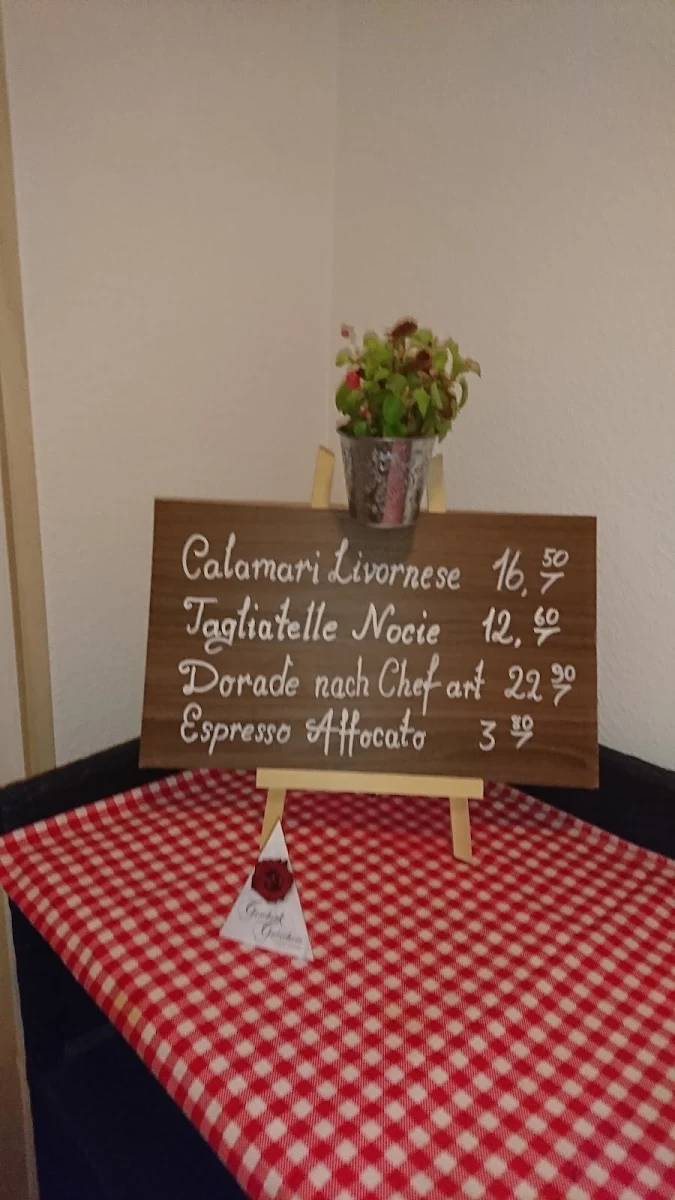 Calamari Livornese 16,50
Tagliatelle Nocie 12,60
Dorade nach Chef art 22 90
Espresso Affocato 3 80